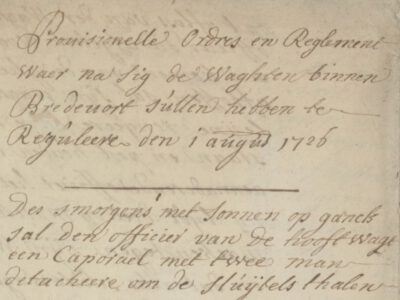 Provisionelle Ordres en Reglement
Waer na sig de Waghten binnen
Bredevort sullen hebben te
Regúleere den 1 augus 1726
Des smorgens met sonnen op ganck
sal den officier van de hooft Wagt
een Caporael met twee man
detacheere om de Slúÿtels thalen